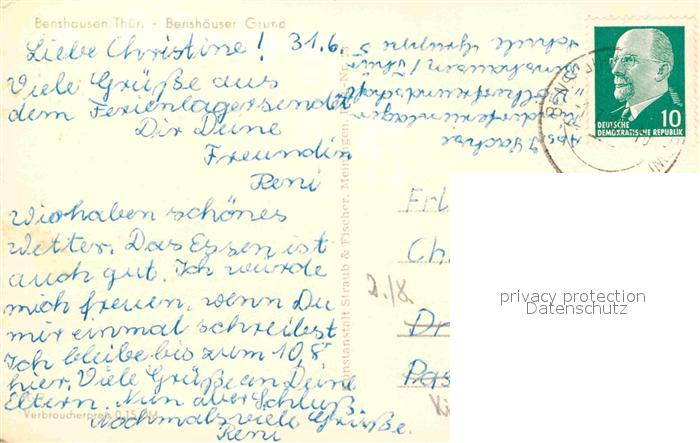 Benshausen Thür. - Benshäuser Grund
Liebe Christine! 31.6.
Viele Grüße aus
dem Ferienlager sendet
Dir Deine
Freundin
Reni
Wir haben schönes
Wetter. Das Essen ist
auch gut. Ich würde
mich freuen, wenn Du
mir einmal schreibst
Ich bleibe bis zum 10.8
hier. Viele Grüße an Deine
Eltern. Nun aber Schluß
Nochmals viele Grüße.
Reni
Verbraucherpreis 0,15 DM
Abs. Sachse
Kinderferienlager
"Völkerfreundschaft"
Benshausen / Thür
Schule Gruppe 5
Kunstanstalt Straub & Fischer, Meiningen,
DEUTSCHE
DEMOKRATISCHE REPUBLIK 10
Frl
Ch
Dr
Pas
privacy protection
Datenschutz